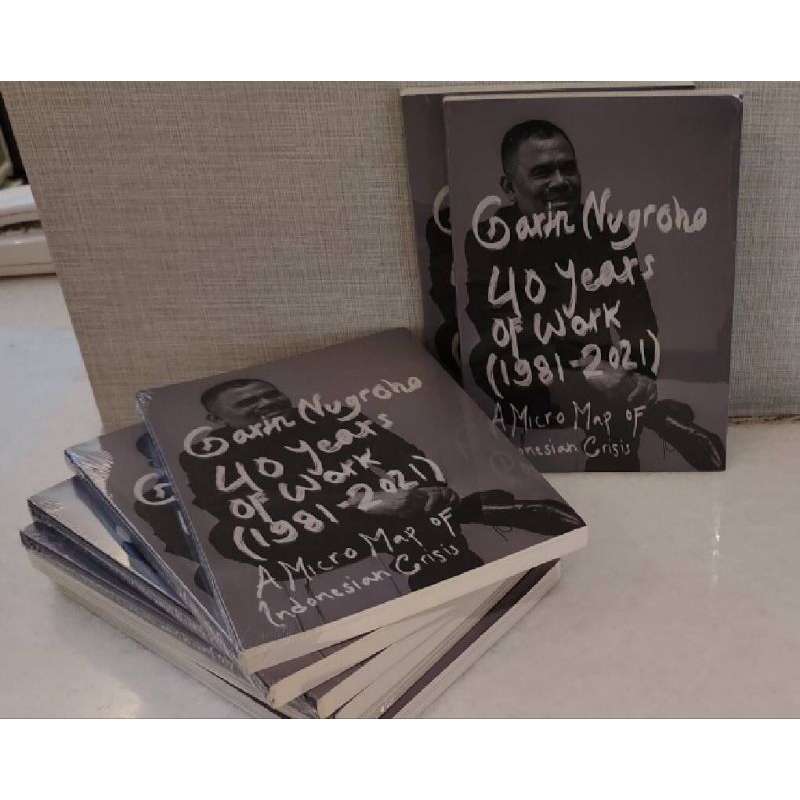 Garin Nugroho
40 years
of Work
(1981-2021)
A Micro Map of
Indonesian Crisis
Garin Nugroho
40 years
of Work
(1981-2021)
A Micro Map of
Indonesian Crisis
G
G